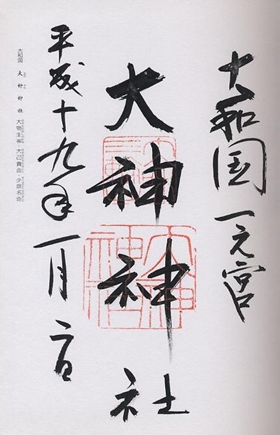 大和国一之宮
大神神社
平成十九年一月二日
大和国 大神神社 大物主神 大己貴命 少彦名命